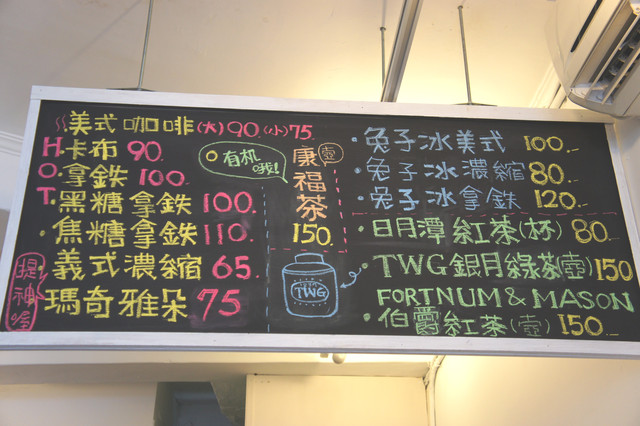 美式咖啡(大)90.(小)75.
HOT
卡布 90.
拿鉄 100.
黑糖拿鉄 100.
焦糖拿鉄 110.
義式濃縮 65.
瑪奇雅朵 75
提神喔
有机哦!
康福茶(壺)
150.
TWG
兔子冰美式 100.-
兔子冰濃縮 80.-
兔子冰拿鉄 120.-
日月潭紅茶(杯) 80.-
TWG銀月綠茶(壺) 150
FORTNUM & MASON
伯爵紅茶(壺) 150.-